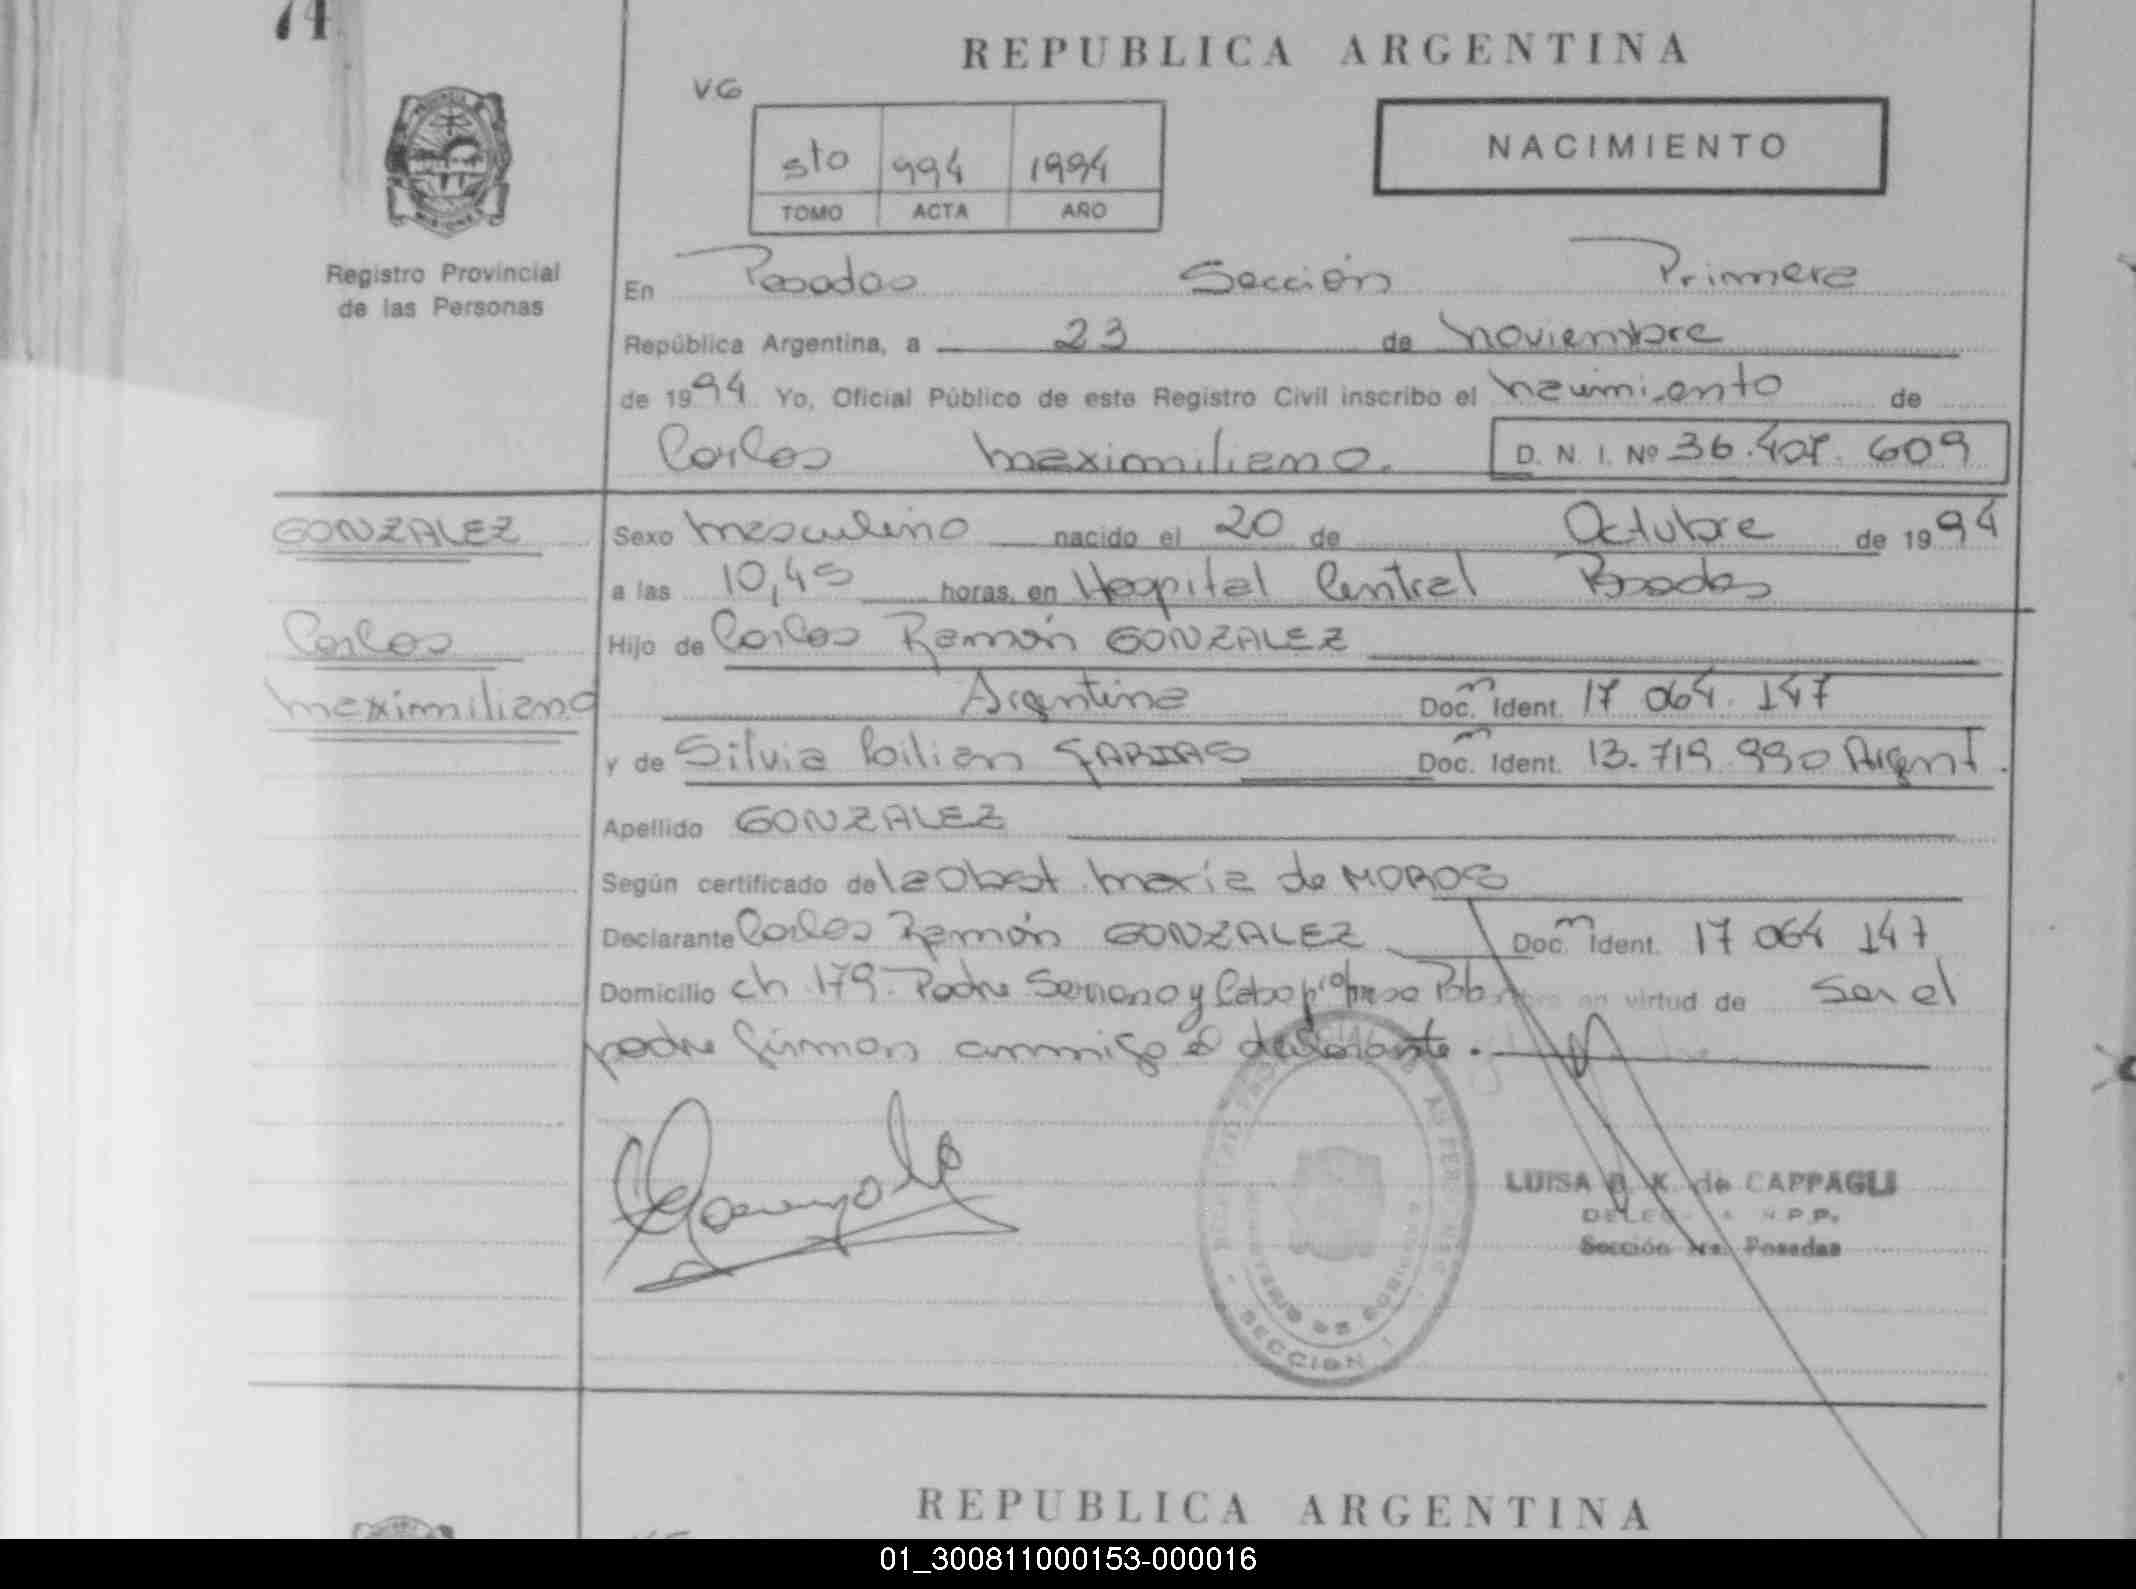 74
REPUBLICA ARGENTINA
VG
NACIMIENTO
sto 994 1994
TOMO ACTA AÑO
Registro Provincial
de las Personas
En Posadas Sección Primera
República Argentina, a 23 de noviembre
de 1994 Yo, Oficial Público de este Registro Civil inscribo el nacimiento de
Carlos maximiliano. D. N. I. Nº 36.407.609
GONZALEZ
Carlos
maximiliano
Sexo masculino nacido el 20 de Octubre de 1994
a las 10,45 horas, en Hospital Central Posadas
Hijo de Carlos Ramón GONZALEZ
Argentina Doc. m Ident. 17 064. 147
y de Silvia Lilian FARIAS Doc. m Ident. 13.719.990 Argent.
Apellido GONZALEZ
Según certificado de la Obst. maria de MOROS
Declarante Carlos Ramón GONZALEZ Doc. m Ident. 17 064 147
Domicilio ch 179. Padre Serrano y Cabo en virtud de Ser el
padre firman conmigo el declarante.
LUISA K. de CAPPAGLI
R.P.P.
Sección 1ra. Posadas
MINISTERIO DE GOBIERNO
SECCION 1
REPUBLICA ARGENTINA
01_300811000153-000016